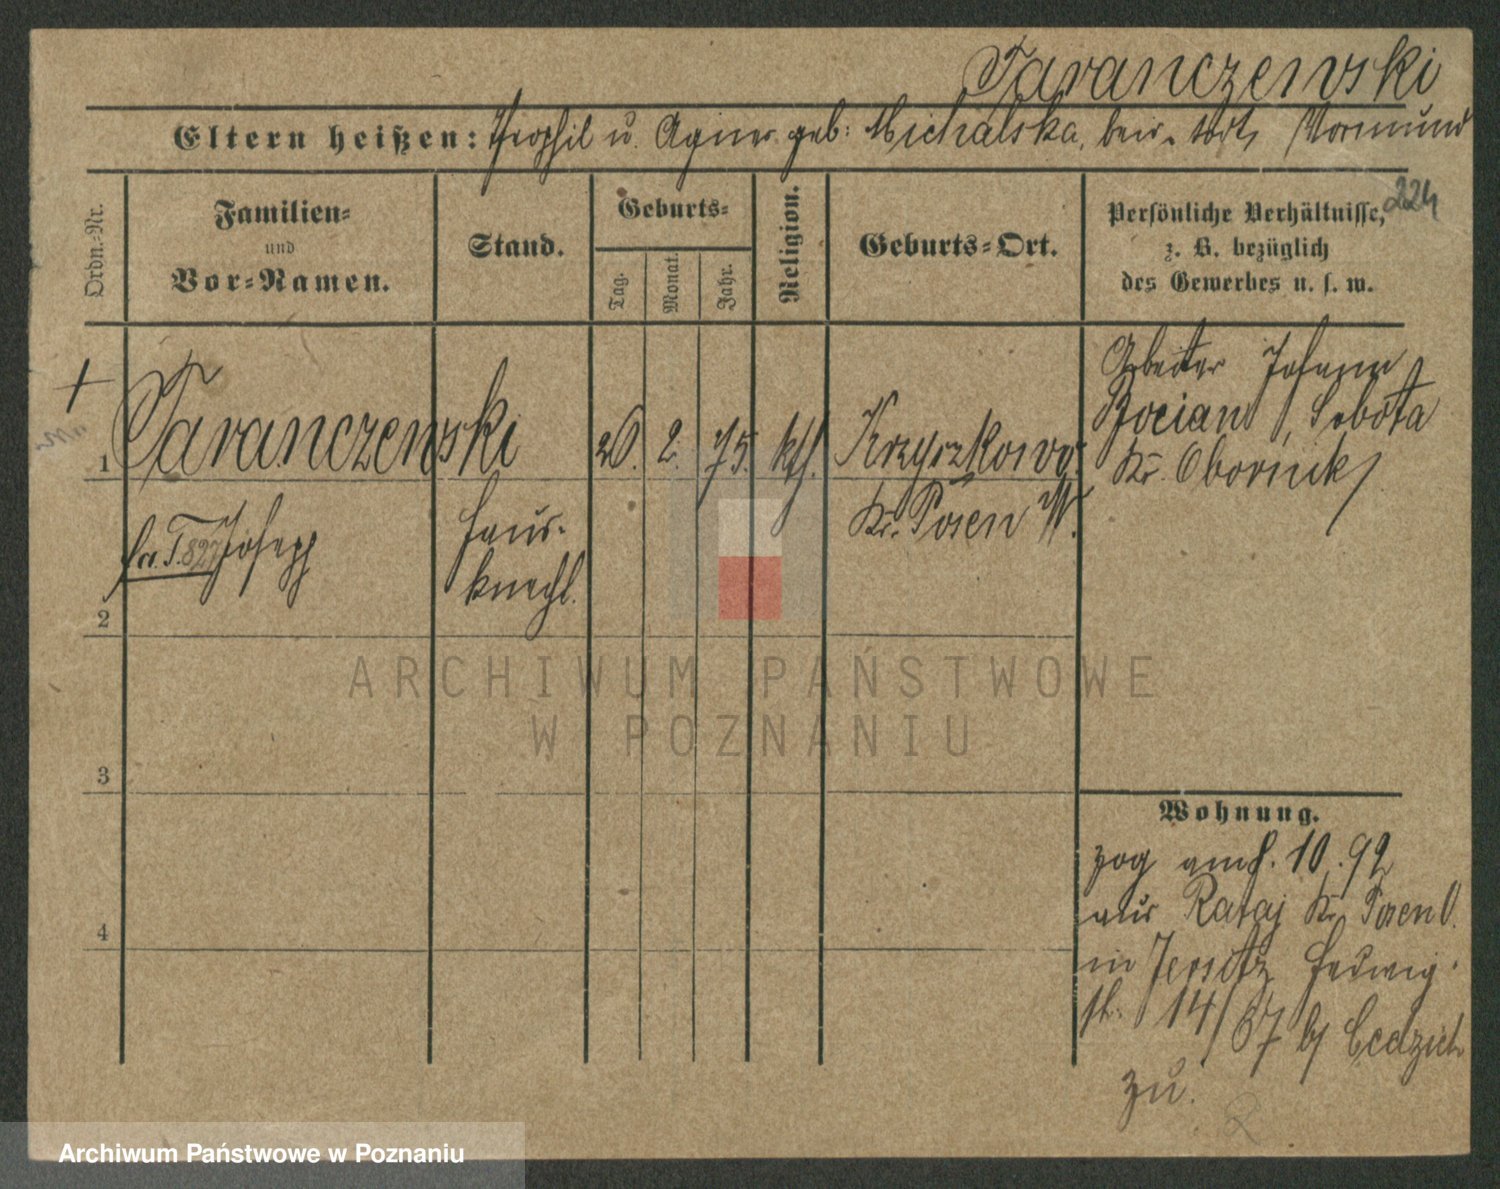 Taranczewski
Eltern heißen: Theophil u. Agnes geb: Michalska, beide todt, Vormund
224
Ordn.-Nr.
Familien-
und
Vor-Namen.
Stand.
Geburts-
Tag.
Monat.
Jahr.
Religion.
Geburts-Ort.
Persönliche Verhältnisse,
z. B. bezüglich
des Gewerbes u. s. w.
Arbeiter Johann
Bocian, Sobota
Kr. Obornik
1 Taranczewski 26. 2. 75. kth. Krzyszkowo
Kr. Posen W.
T. 827 Joseph
Haus-
knecht.
2
3
4
Wohnung.
zog am 8. 10. 92
aus Rataj Kr. Posen O.
in Jersitz Hedwig-
str. 14/67 b/
zu.
ARCHIWUM PAŃSTWOWE
W POZNANIU
Archiwum Państwowe w Poznaniu